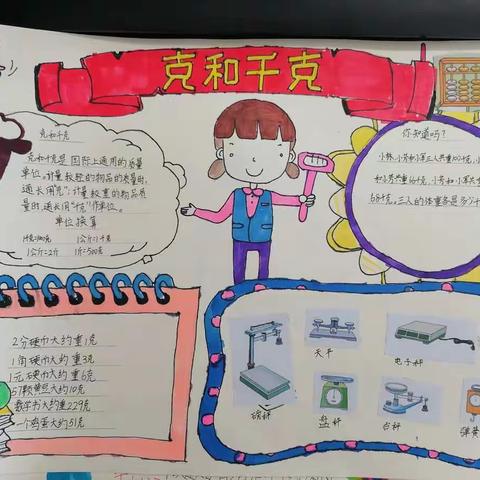 克和千克
克和千克
克和千克是国际上通用的质量
单位。计量较轻的物品的质量时,
通长用"克";计量较重的物品质
量时通长用"千克"作单位。
单位换算
1公斤=1千克
1公斤=2斤 1斤=500克
2分硬币大约重1克
1角硬币大约重3克
1元硬币大约重6克
数学书大约重229克
一个鸡蛋大约51克
你知道吗?
小林、小芳和小军三人共重100千克,小
和小芳共重64千克,小芳和小军共
68千克。三人的体重各是多少千
天平
电子秤
磅秤
盘秤
台秤
弹簧